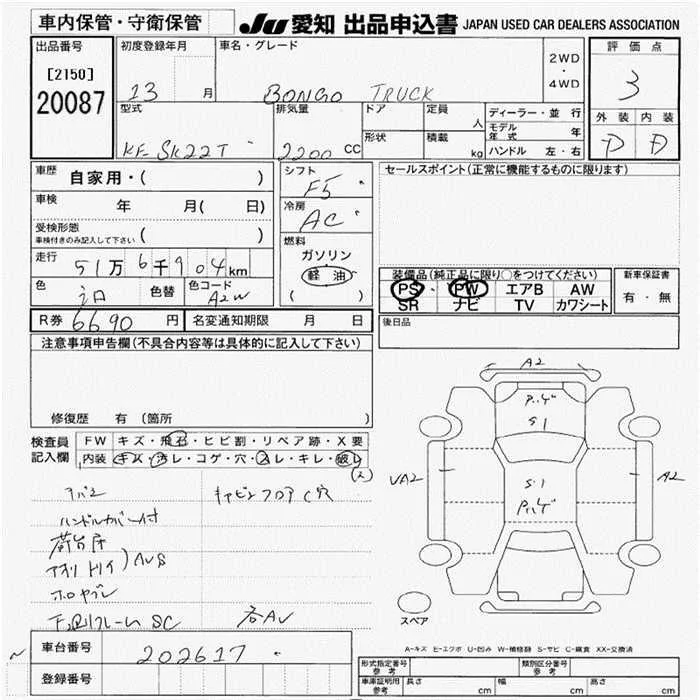 車内保管・守衛保管
JU 愛知 出品申込書 JAPAN USED CAR DEALERS ASSOCIATION
出品番号
[2150]
20087
初度登録年月
13 月
車名・グレード
BONGO TRUCK
2WD
・
4WD
評価点
3
外装 内装
D D
型式
KF-SK22T
排気量
2200 CC
ドア
定員
人
形状
積載
kg
ディーラー・並行
モデル年式 年
ハンドル 左・右
車歴 自家用・( )
車検 年 月( 日)
受検形態
車検付きのみ記入して下さい ( )
走行 51万6千904km
色 色替 色コード
A2W
シフト
F5
冷房
AC
燃料
ガソリン
軽油
( )
セールスポイント(正常に機能するものに限ります)
装備品(純正品に限り○をつけてください)
PS・PW エアB AW
SR ナビ TV カワシート
新車保証書
有・無
後日品
R券 6690 円 名変通知期限 月 日
注意事項申告欄(不具合内容等は具体的に記入して下さい)
修復歴 有 (箇所 )
検査員記入欄
FW キズ・飛石・ヒビ割・リペア跡・X要
内装 キズ・汚レ・コゲ・穴・スレ・キレ・破レ
ハンドルカバー付
荷台床
アオリ
AUS
SC
各AU
C穴
A2
S1
S1
UA2
A2
スペア
A-キズ E-エクボ U-凹み W-補修跡 S-サビ C-腐食 XX-交換済
車台番号 202617
登録番号
形式指定番号 参考
類別区分番号 参考
車庫証明用 参考 長さ cm 幅 cm 高さ cm